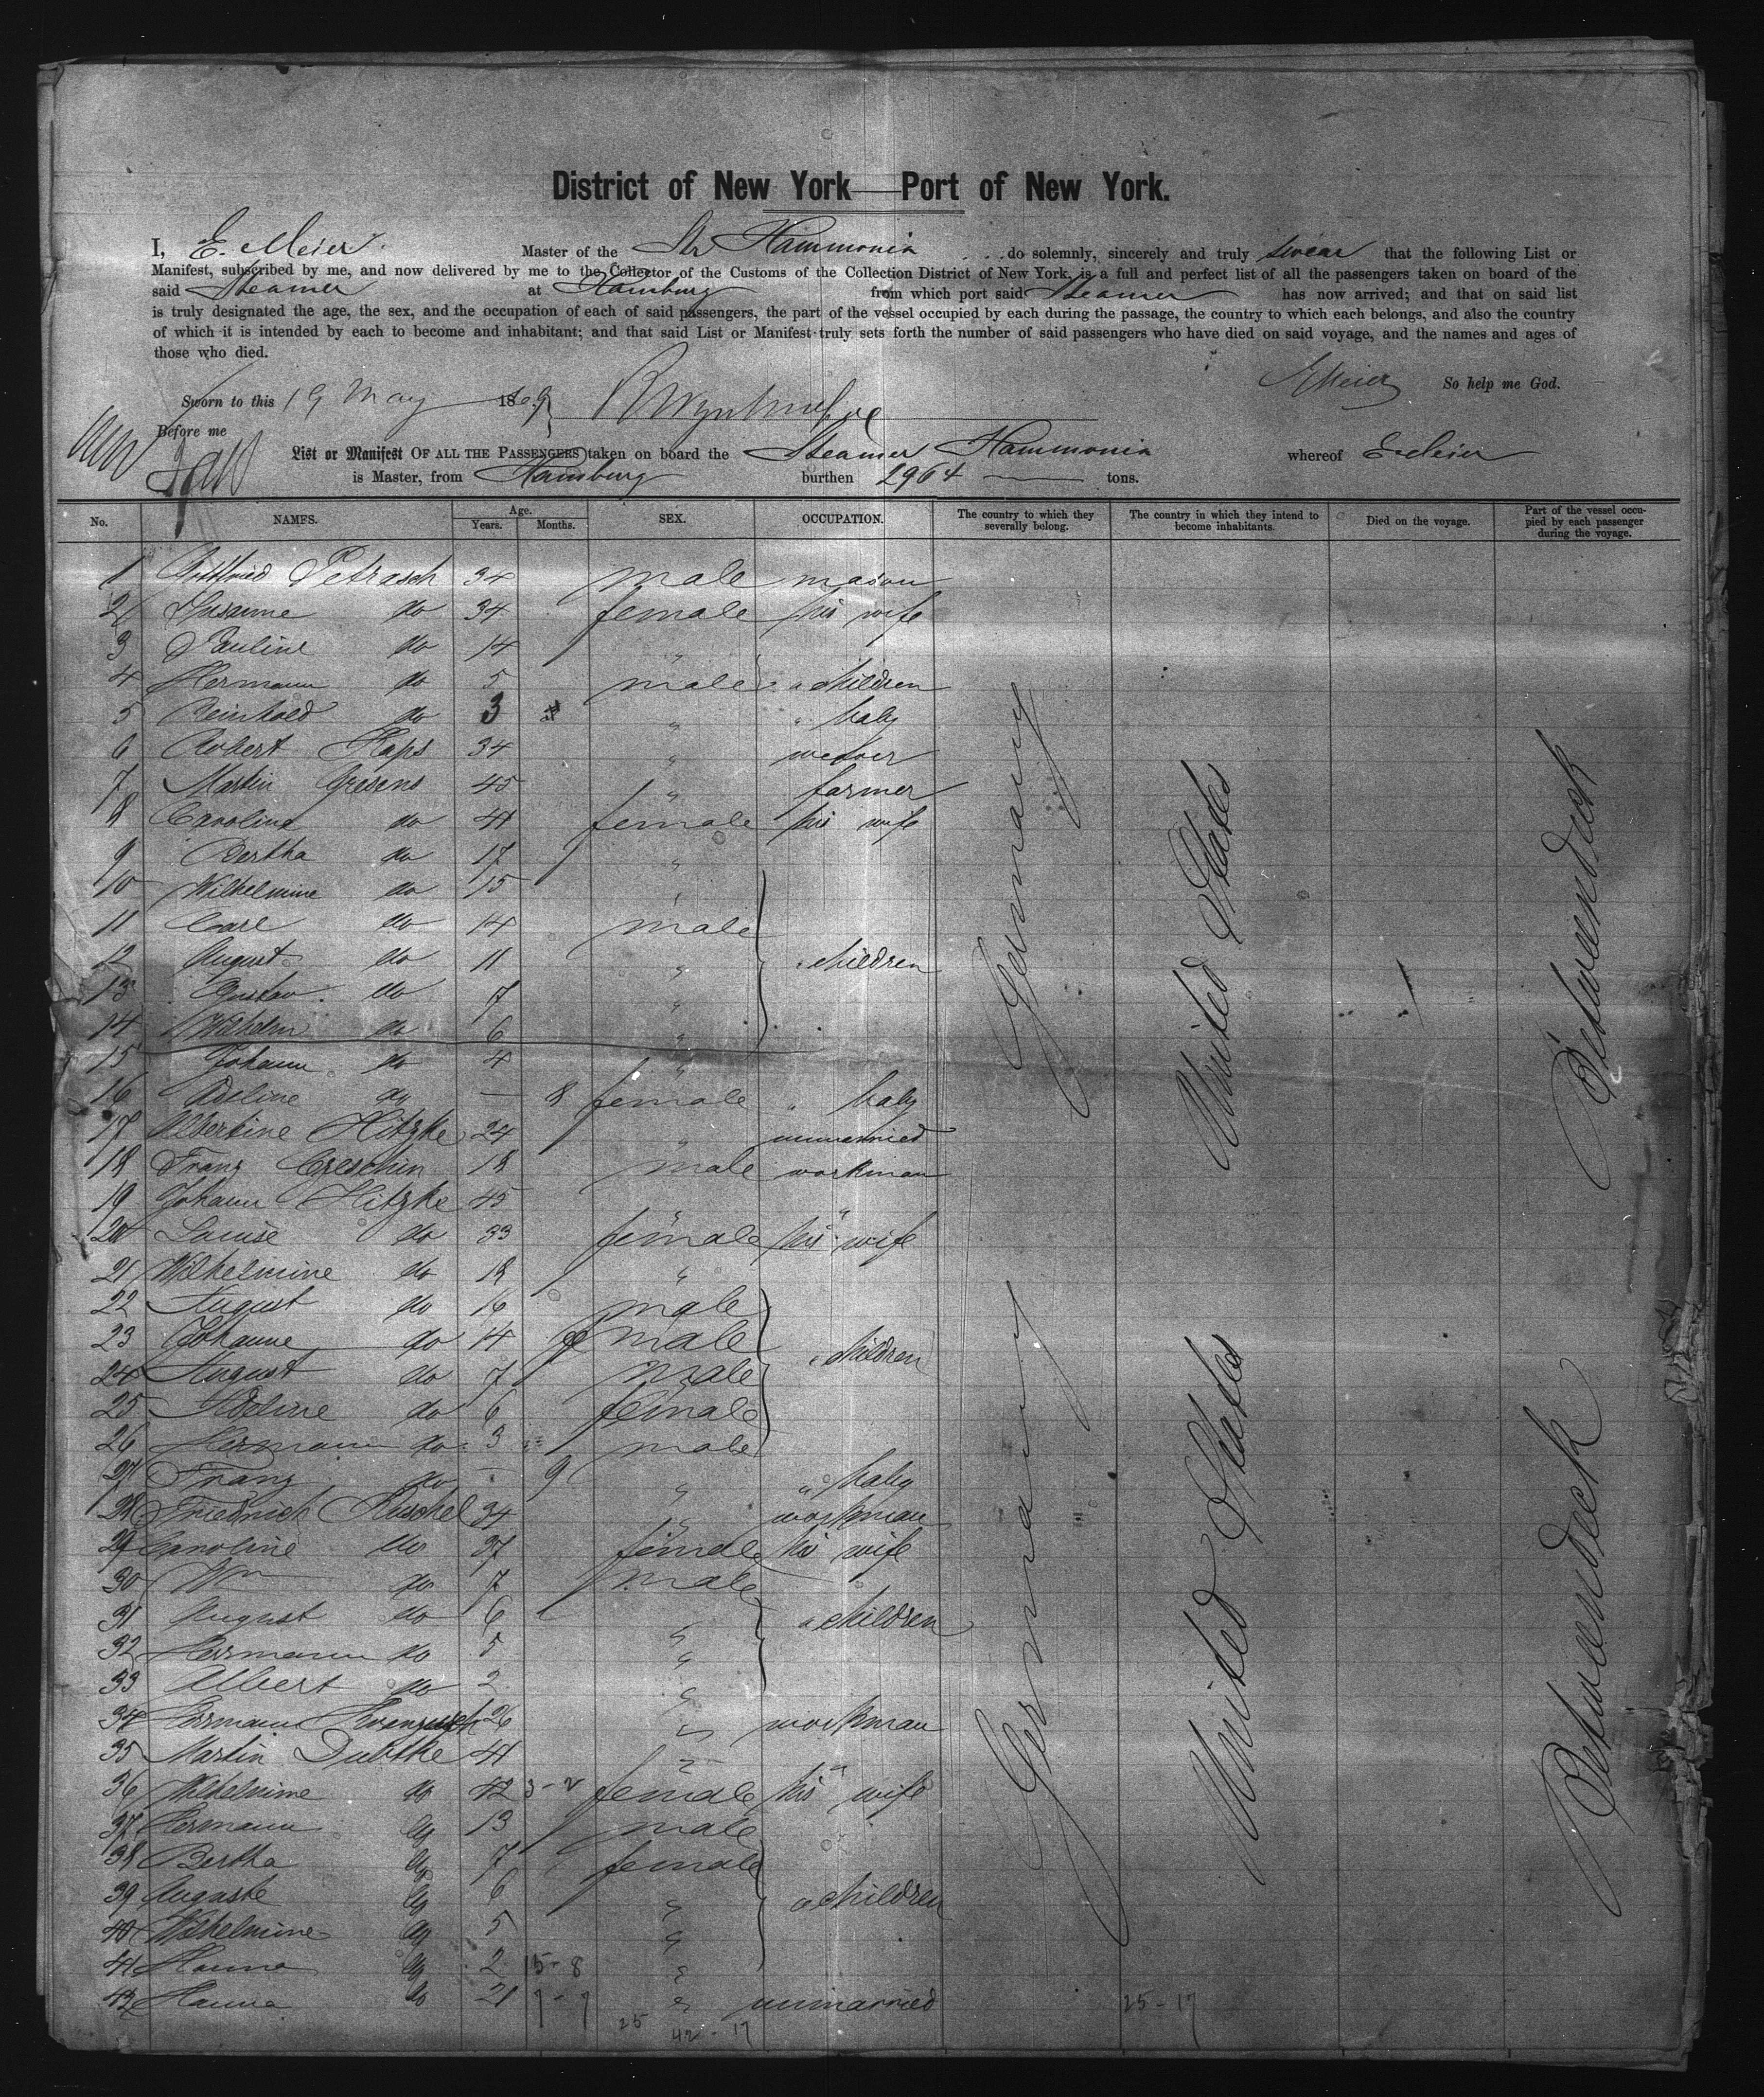 District of New York — Port of New York.
I, E. Meier Master of the Str Hammonia do solemnly, sincerely and truly swear that the following List or
Manifest, subscribed by me, and now delivered by me to the Collector of the Customs of the Collection District of New York, is a full and perfect list of all the passengers taken on board of the
said Steamer at Hamburg from which port said Steamer has now arrived; and that on said list
is truly designated the age, the sex, and the occupation of each of said passengers, the part of the vessel occupied by each during the passage, the country to which each belongs, and also the country
of which it is intended by each to become and inhabitant; and that said List or Manifest truly sets forth the number of said passengers who have died on said voyage, and the names and ages of
those who died.
E Meier So help me God.
Sworn to this 19 May 1869
Before me
List or Manifest OF ALL THE PASSENGERS taken on board the Steamer Hammonia whereof E. Meier
is Master, from Hamburg burthen 2964 tons.
No. NAMES. Age. Years. Months. SEX. OCCUPATION. The country to which they severally belong. The country in which they intend to become inhabitants. Died on the voyage. Part of the vessel occupied by each passenger during the voyage.
1 Gottfried Petrasch 34 male mason
2 Susanne do 34 female his wife
3 Pauline do 14 "
4 Hermann do 5 male " children
5 Reinhold do 3 " " baby
6 Robert Haps 34 " weaver
7 Martin Gresens 45 " farmer
8 Caroline do 41 female his wife
9 Bertha do 17 "
10 Wilhelmine do 15 "
11 Carl do 14 male
12 August do 11 " " children
13 Gustav do 7 "
14 Wilhelm do 6 "
15 Johann do 4 "
16 Adeline do — 8 female " baby
17 Albertine Hitzke 24 " unmarried
18 Franz Czeschin 18 male workman
19 Johann Hitzke 45 " "
20 Louise do 33 female his wife
21 Wilhelmine do 18 "
22 August do 16 male
23 Johanne do 14 female " children
24 August do 7 male
25 Adeline do 6 female
26 Hermann do 3 male
27 Franz do - 9 " " baby
28 Friedrich Kuschel 34 " workman
29 Caroline do 37 female his wife
30 Wm do 7 male
31 August do 6 " " children
32 Hermann do 5 "
33 Albert do 2 "
34 Hermann 26 " workman
35 Martin Dubtke 41 " "
36 Wilhelmine do 42 female his wife
37 Hermann do 13 male
38 Bertha do 7 female
39 Auguste do 6 " " children
40 Wilhelmine do 5 "
41 Hanna do 2 15-8 "
42 Hanna do 21 7-7 " unmarried
25-17
25
42-17
Germany
Germany
United States
United States
Betweendeck
Betweendeck